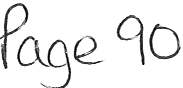 Page 90